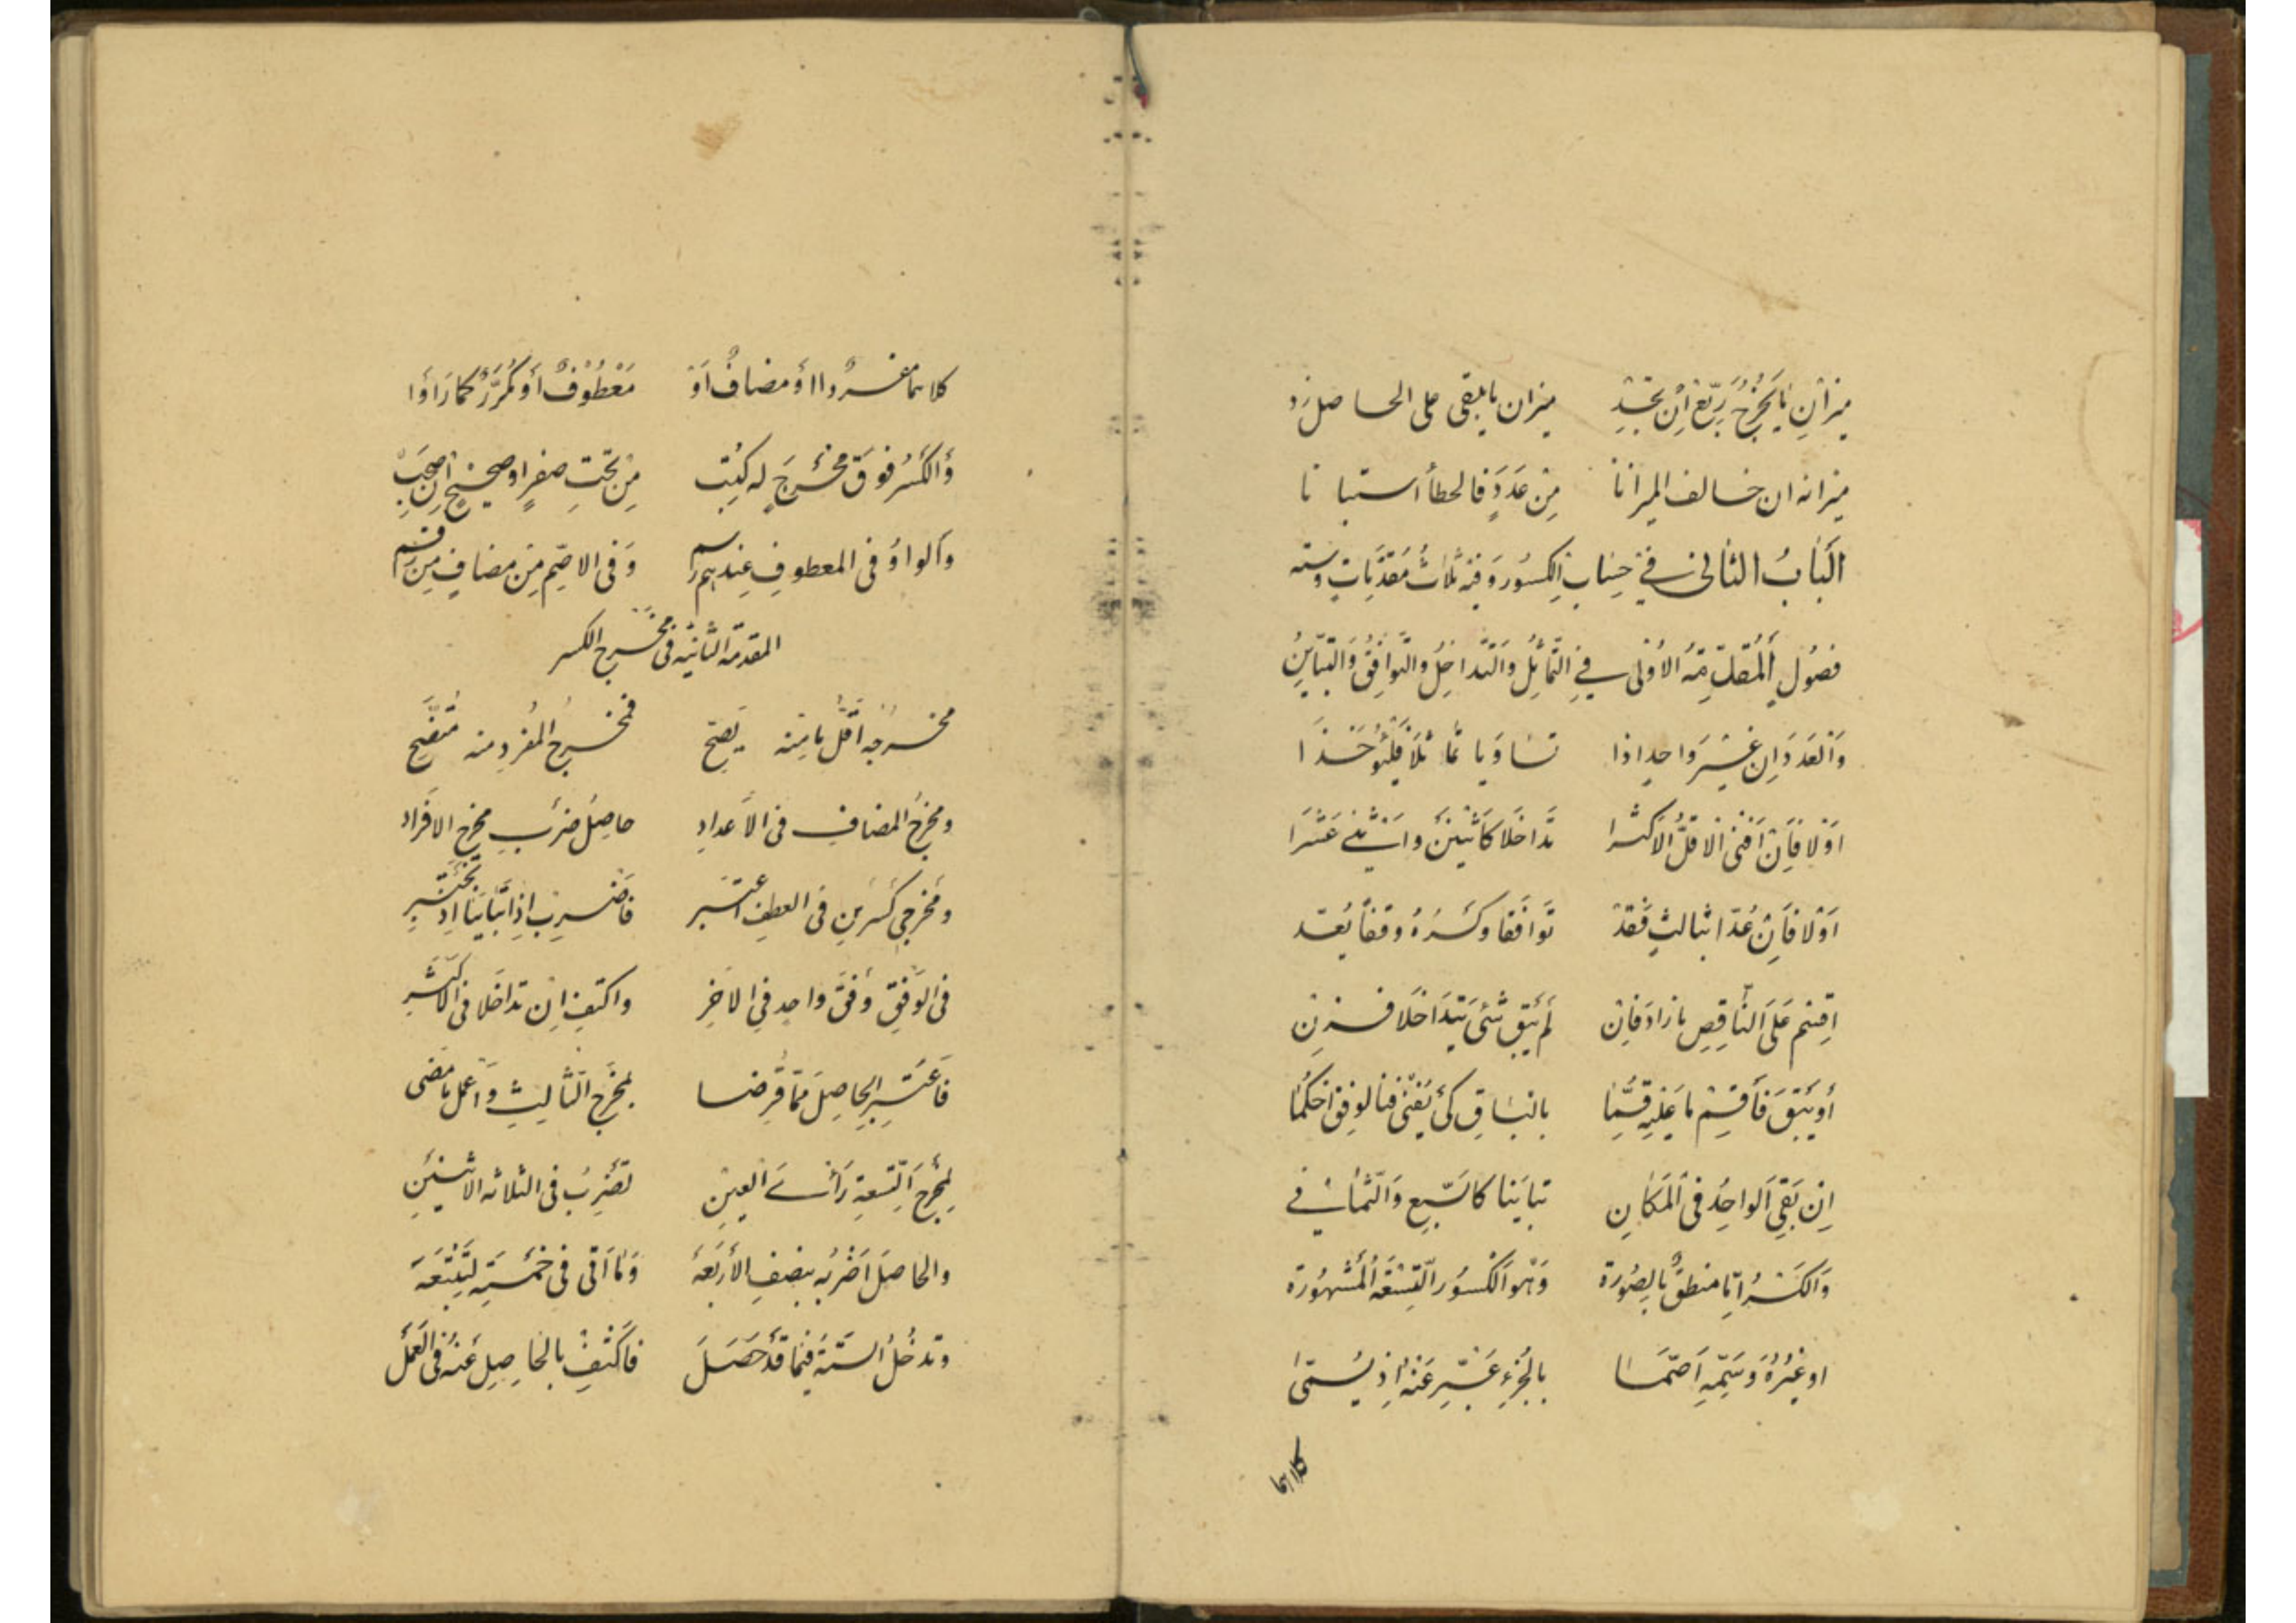 ميزان ما يخرج ربع ان تجد ميزان ما يبقى على الحاصل زد
ميزانه ان خالف الميزانا من عدد فالخطأ استبانا
الباب الثاني في حساب الكسور وفيه ثلاث مقدمات وستة
فصول المقدمة الاولى في التماثل والتداخل والتوافق والتباين
والعددان غير واحد اذا تساويا تماثلا فليؤخذا
اولا فان افنى الاقل الاكثرا تداخلا كاثنين واثني عشرا
اولا فان عدا بثالث فقد توافقا وكسره وفقا يعد
اقسم على الناقص ما زاد فان لم يبق شئ يتداخلا فزن
أو يبق فأقسم ما عليه قسما بالباقي كي يفنى فبالوفق احكما
ان بقي الواحد في المكان تباينا كالسبع والثماني
والكسر اما منطق بالصورة وهو الكسور التسعة المشهورة
او غيره وسمه اصما بالجزء عبر عنه اذ يسمى
كلاهما
كلاهما مفردا أو مضاف او معطوف أو مكرر كما راوا
والكسر فوق مخرج له كتب من تحت صفر او صحيح ان صحب
والواو في المعطوف عندهم رسم وفي الاصم من مضاف من رقم
المقدمة الثانية في مخرج الكسر
مخرجه أقل ما منه يصح فمخرج المفرد منه متضح
ومخرج المضاف في الأعداد حاصل ضرب مخرج الافراد
ومخرجي كسرين في العطف اعتبر فاضرب اذا تباينا اذ تختبر
في الوفق وفق واحد في الاخر واكتف ان تداخلا في الاكثر
فاعتبر الحاصل مما فرضا بمخرج الثالث واعمل ما مضى
لمخرج التسعة رأس العين تضرب في الثلاثة الاثنين
والحاصل اضربه بنصف الأربعة وما اتى في خمسة لتتبعه
وتدخل الستة فيما قد حصل فاكتف بالحاصل عنه في العمل